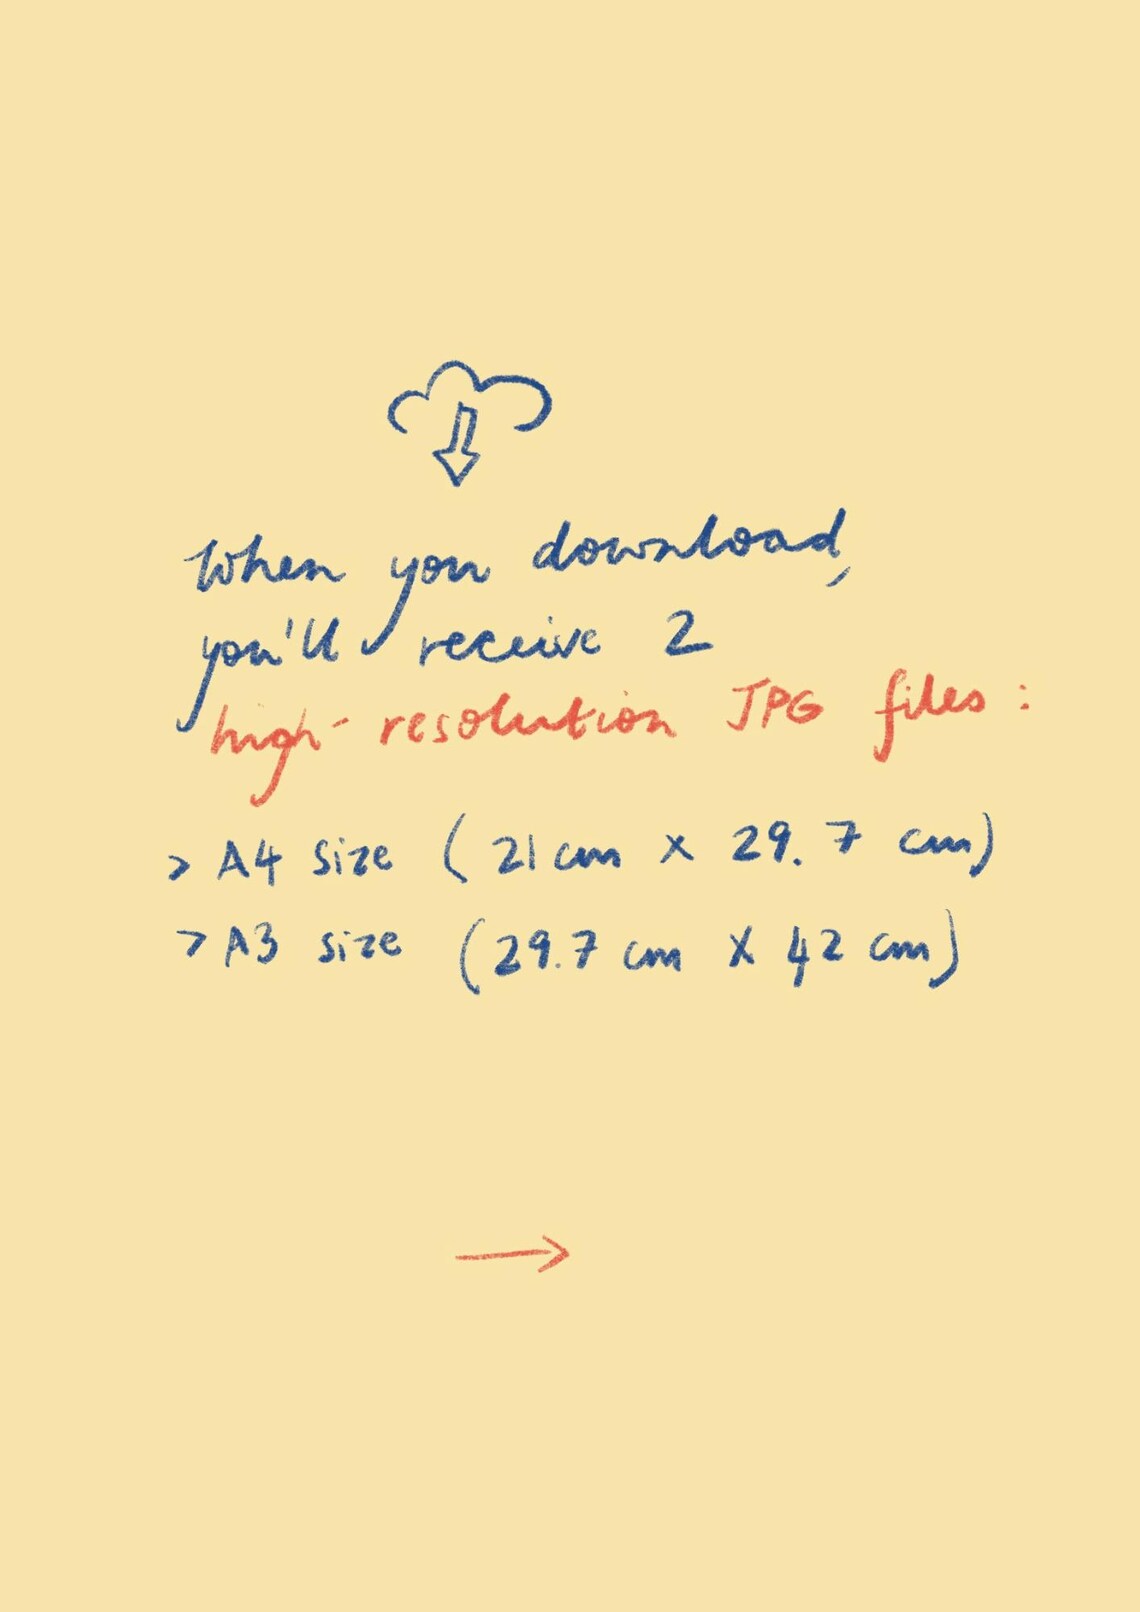 When you download,
you'll receive 2
high-resolution JPG files:
> A4 size (21cm x 29.7 cm)
> A3 size (29.7 cm x 42 cm)